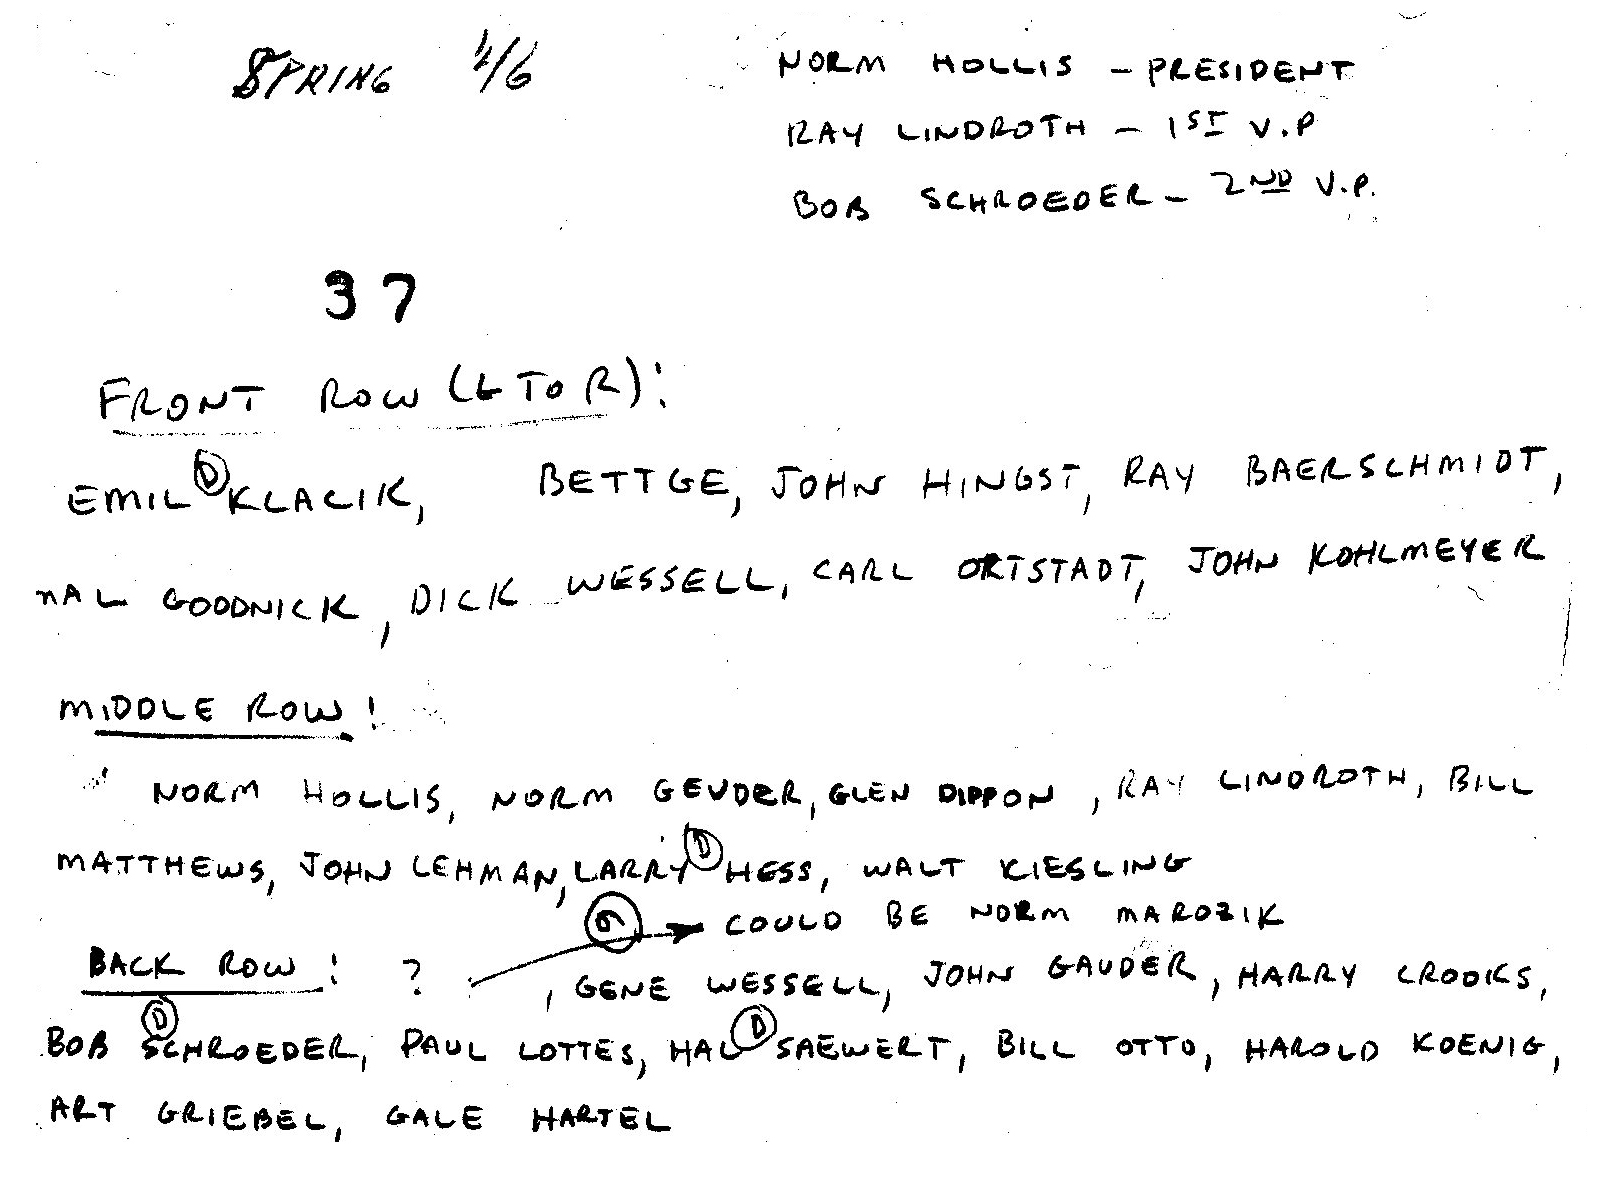 SPRING 4/6
NORM HOLLIS - PRESIDENT
RAY LINDROTH - 1ST V.P
BOB SCHROEDER - 2ND V.P.
37
FRONT ROW (L TO R):
EMIL Ⓓ KLACIK, BETTGE, JOHN HINGST, RAY BAERSCHMIDT,
MAL GOODNICK, DICK WESSELL, CARL ORTSTADT, JOHN KOHLMEYER
MIDDLE ROW:
NORM HOLLIS, NORM GEUDER, GLEN DIPPON, RAY LINDROTH, BILL
MATTHEWS, JOHN LEHMAN, LARRY Ⓓ HESS, WALT KIESLING
COULD BE NORM MAROZIK
BACK ROW: ? , GENE WESSELL, JOHN GAUDER, HARRY CROOKS,
BOB Ⓓ SCHROEDER, PAUL LOTTES, HAL Ⓓ SAEWERT, BILL OTTO, HAROLD KOENIG,
ART GRIEBEL, GALE HARTEL